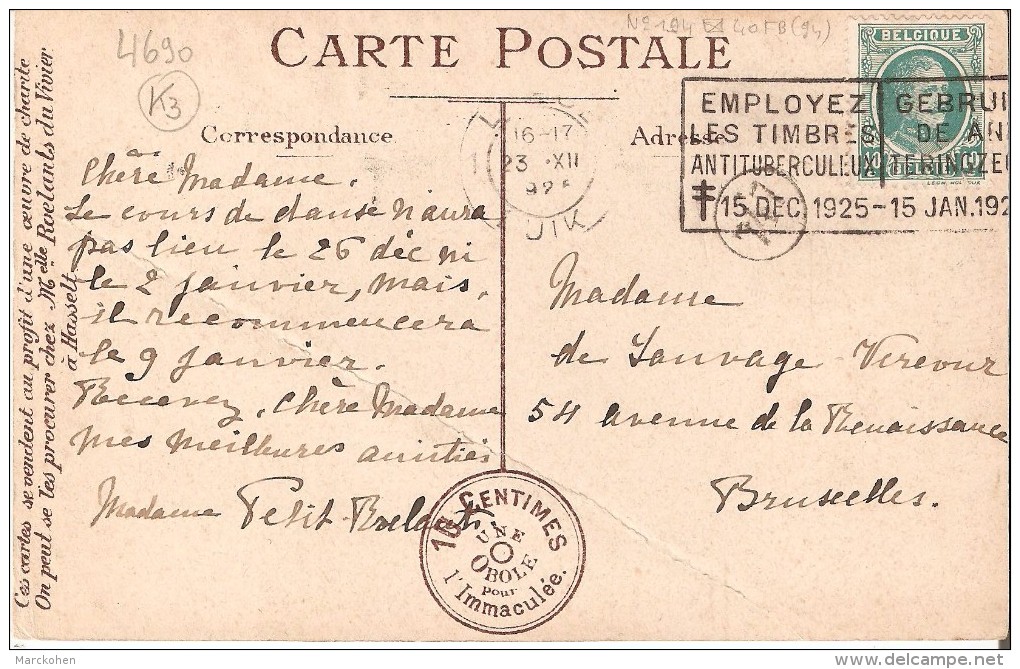 4690
K3
No 194 40FB (94)
CARTE POSTALE
BELGIQUE
Correspondance
Adresse
16-17
23 XII
UIK
EMPLOYEZ
LES TIMBRES
ANTITUBERCULEUX
15 DEC. 1925-15 JAN.192
GEBRUI
DE AN
TERINGZEG
Chère Madame.
Le cours de danse n'aura
pas lieu le 26 déc ni
le 2 janvier, mais,
il recommencera
le 9 janvier.
Recevez, Chère Madame
mes meilleures amitiés
Madame Petit
Madame
de Sauvage Vercour
54 avenue de la Renaissance
Bruxelles.
15 CENTIMES
UNE
OBOLE
pour
l'Immaculée.
Ces cartes se vendent au profit d'une œuvre de charité
On peut se les procurer chez Melle Roelants du Vivier
à Hasselt
Marckohen
www.delcampe.net